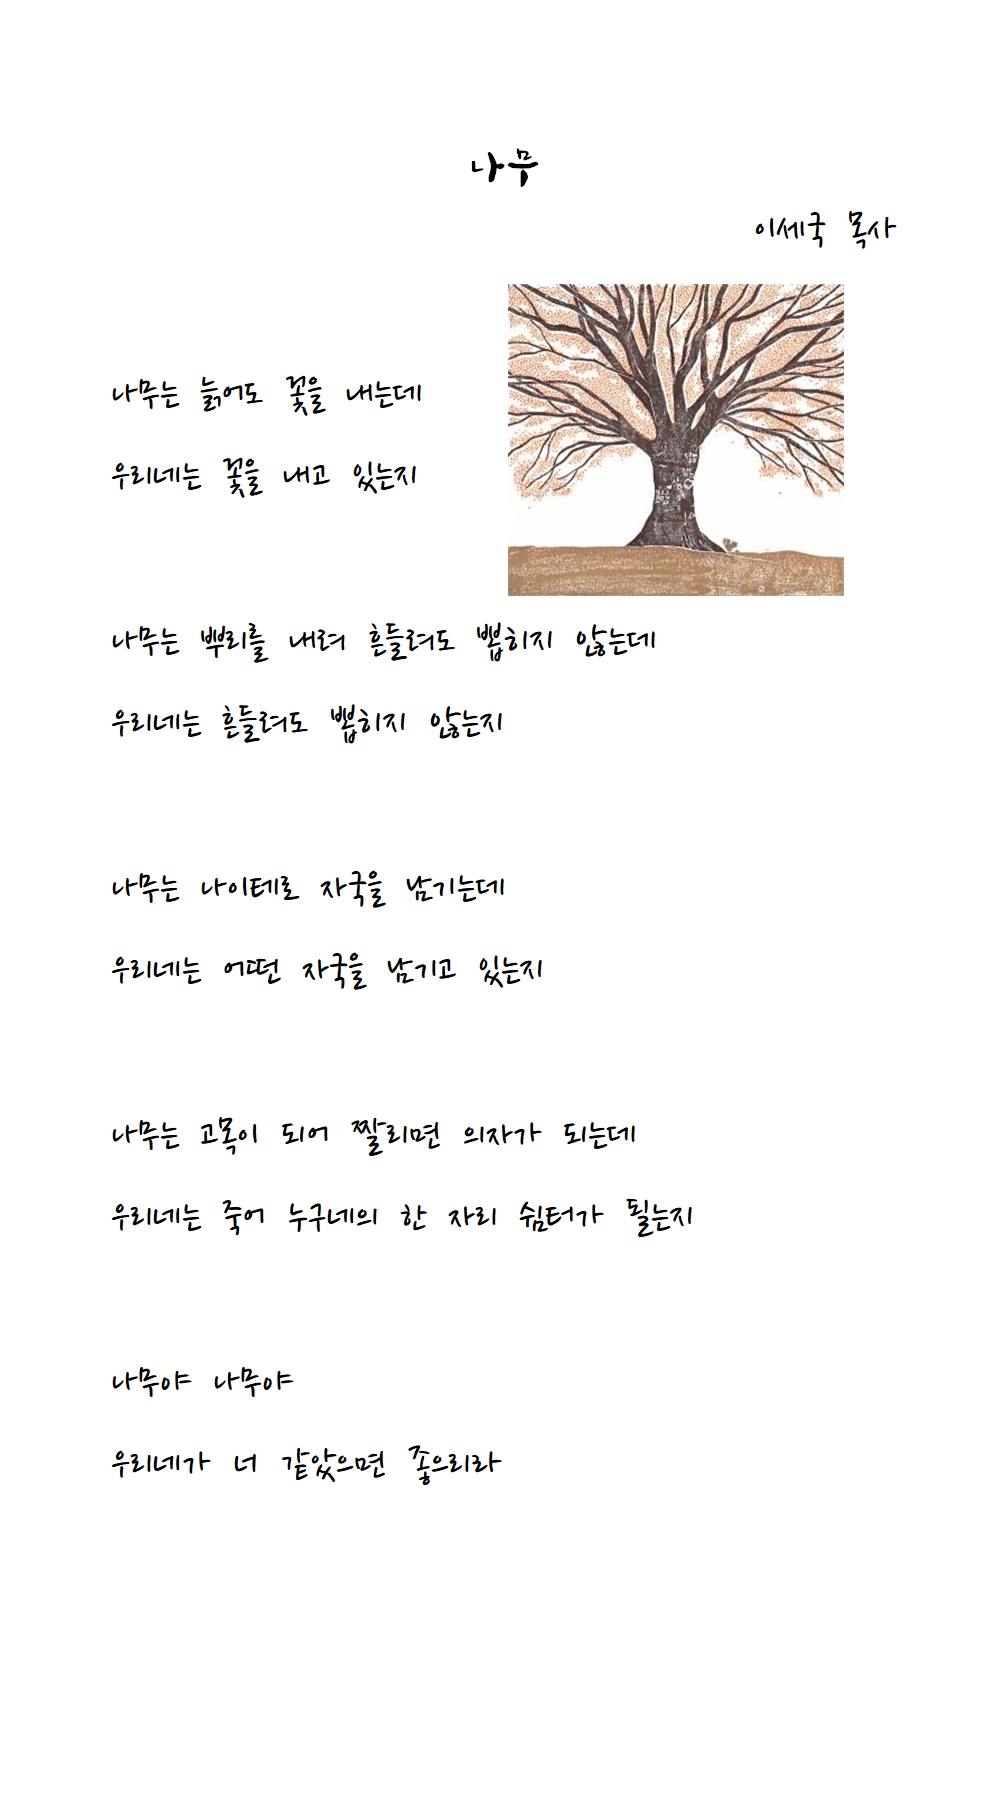 나무
이세국 목사
나무는 늙어도 꽃을 내는데
우리네는 꽃을 내고 있는지
나무는 뿌리를 내려 흔들려도 뽑히지 않는데
우리네는 흔들려도 뽑히지 않는지
나무는 나이테로 자국을 남기는데
우리네는 어떤 자국을 남기고 있는지
나무는 고목이 되어 짤리면 의자가 되는데
우리네는 죽어 누구네의 한 자리 쉼터가 될는지
나무야 나무야
우리네가 너 같았으면 좋으리라